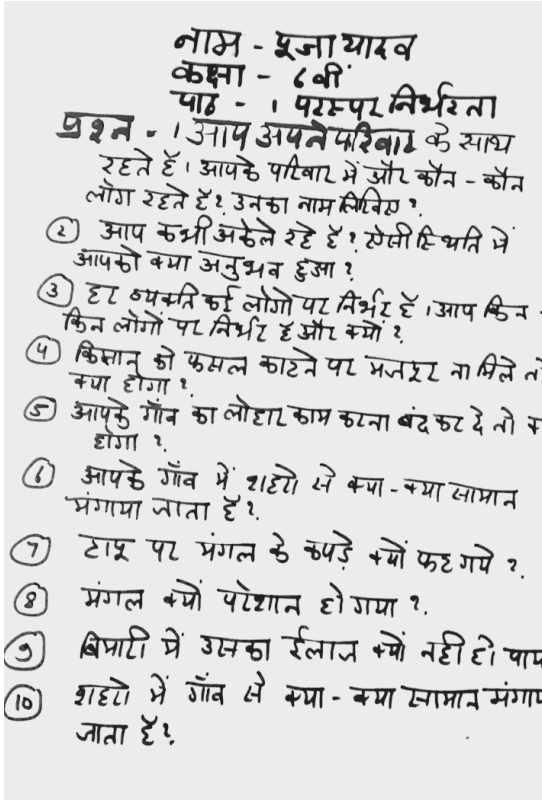 नाम - पूजा यादव
कक्षा - 6वीं
पाठ - 1 परस्पर निर्भरता
प्रश्न - 1 आप अपने परिवार के साथ
रहते हैं। आपके परिवार में और कौन - कौन
लोग रहते हैं? उनका नाम लिखिए?
② आप कभी अकेले रहे है? ऐसी स्थिति में
आपको क्या अनुभव हुआ?
③ हर व्यक्ति कई लोगों पर निर्भर है। आप किन -
किन लोगों पर निर्भर है और क्यों?
④ किसान को फसल काटने पर मजदूर ना मिले तो
क्या होगा?
⑤ आपके गाँव का लोहार काम करना बंद कर दे तो
होगा?
⑥ आपके गाँव में शहरो से क्या - क्या सामान
मंगाया जाता है?
⑦ टापू पर मंगल के कपड़े क्यों फट गये?
⑧ मंगल क्यों परेशान हो गया?
⑨ बिमारी में उसका ईलाज क्यों नही हो पाय
⑩ शहरो में गाँव से क्या - क्या सामान मंगाय
जाता है?